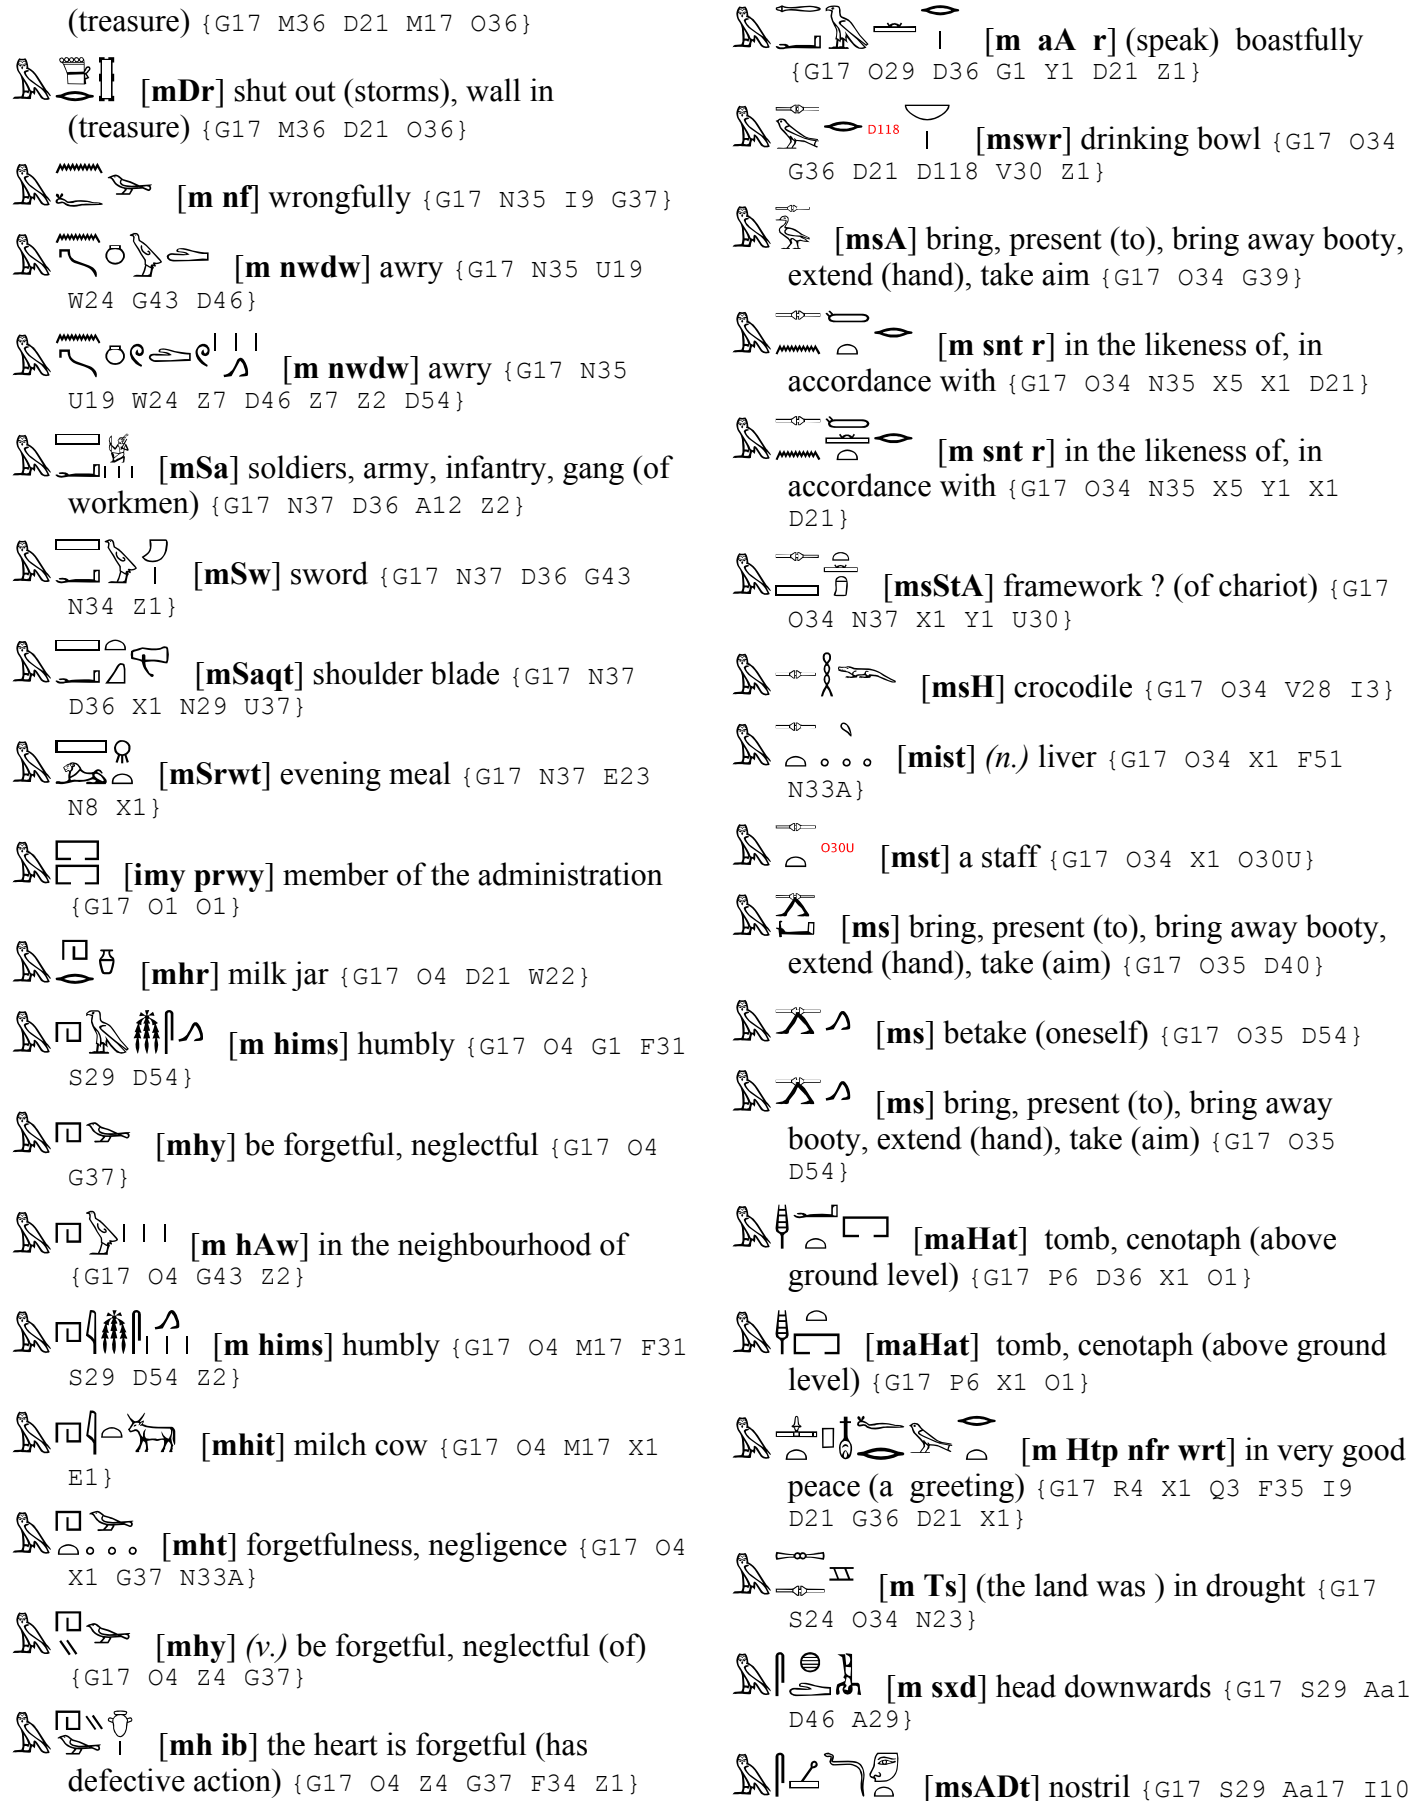 (treasure) {G17 M36 D21 M17 O36}
[mDr] shut out (storms), wall in
(treasure) {G17 M36 D21 O36}
[m nf] wrongfully {G17 N35 I9 G37}
[m nwdw] awry {G17 N35 U19
W24 G43 D46}
[m nwdw] awry {G17 N35
U19 W24 Z7 D46 Z7 Z2 D54}
[mSa] soldiers, army, infantry, gang (of
workmen) {G17 N37 D36 A12 Z2}
[mSw] sword {G17 N37 D36 G43
N34 Z1}
[mSaqt] shoulder blade {G17 N37
D36 X1 N29 U37}
[mSrwt] evening meal {G17 N37 E23
N8 X1}
[imy prwy] member of the administration
{G17 O1 O1}
[mhr] milk jar {G17 O4 D21 W22}
[m hims] humbly {G17 O4 G1 F31
S29 D54}
[mhy] be forgetful, neglectful {G17 O4
G37}
[m hAw] in the neighbourhood of
{G17 O4 G43 Z2}
[m hims] humbly {G17 O4 M17 F31
S29 D54 Z2}
[mhit] milch cow {G17 O4 M17 X1
E1}
[mht] forgetfulness, negligence {G17 O4
X1 G37 N33A}
[mhy] (v.) be forgetful, neglectful (of)
{G17 O4 Z4 G37}
[mh ib] the heart is forgetful (has
defective action) {G17 O4 Z4 G37 F34 Z1}
[m aA r] (speak) boastfully
{G17 O29 D36 G1 Y1 D21 Z1}
D118 [mswr] drinking bowl {G17 O34
G36 D21 D118 V30 Z1}
[msA] bring, present (to), bring away booty,
extend (hand), take aim {G17 O34 G39}
[m snt r] in the likeness of, in
accordance with {G17 O34 N35 X5 X1 D21}
[m snt r] in the likeness of, in
accordance with {G17 O34 N35 X5 Y1 X1
D21}
[msStA] framework ? (of chariot) {G17
O34 N37 X1 Y1 U30}
[msH] crocodile {G17 O34 V28 I3}
[mist] (n.) liver {G17 O34 X1 F51
N33A}
O30U [mst] a staff {G17 O34 X1 O30U}
[ms] bring, present (to), bring away booty,
extend (hand), take (aim) {G17 O35 D40}
[ms] betake (oneself) {G17 O35 D54}
[ms] bring, present (to), bring away
booty, extend (hand), take (aim) {G17 O35
D54}
[maHat] tomb, cenotaph (above
ground level) {G17 P6 D36 X1 O1}
[maHat] tomb, cenotaph (above ground
level) {G17 P6 X1 O1}
[m Htp nfr wrt] in very good
peace (a greeting) {G17 R4 X1 Q3 F35 I9
D21 G36 D21 X1}
[m Ts] (the land was ) in drought {G17
S24 O34 N23}
[m sxd] head downwards {G17 S29 Aa1
D46 A29}
[msADt] nostril {G17 S29 Aa17 I10